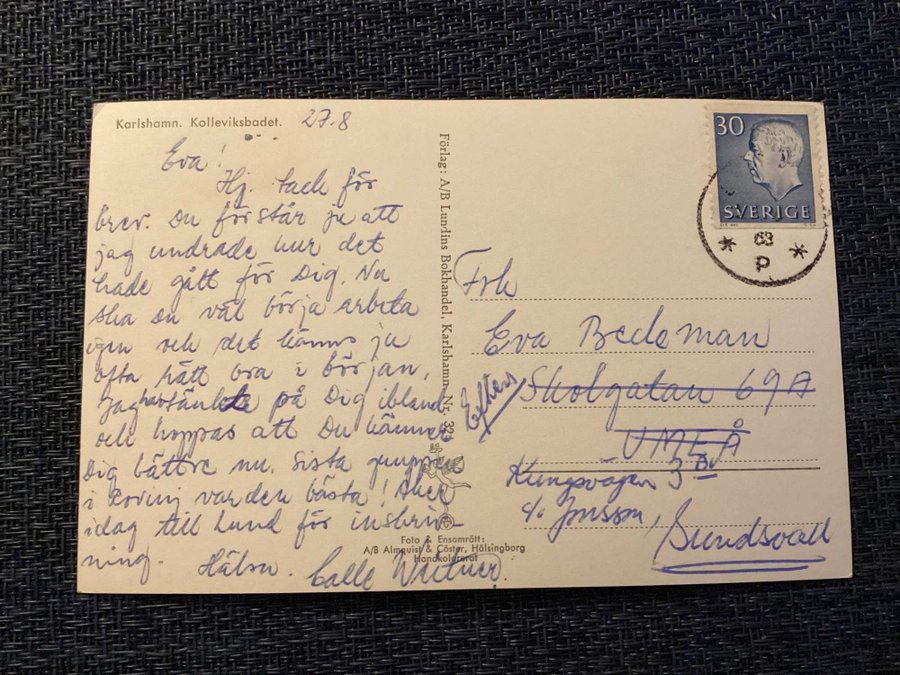 Karlshamn. Kolleviksbadet. 27.8
Eva!
Hj. tack för
brev. Du förstår ju att
jag undrade hur det
hade gått för Dig. Nu
ska du väl börja arbeta
igen och det känns ju
ofta rätt bra i början.
Jag har tänkt på Dig ibland
och hoppas att Du känner
Dig bättre nu. Sista gruppen
i var den bästa! Åker
idag till Lund för inskriv-
ning. Hälsn. Calle
Förlag: A/B Lundins Bokhandel, Karlshamn. Nr. 321
Foto & Ensamrätt:
A/B Almquist & Cöster, Hälsingborg
Handkolorerat
30
SVERIGE
63
P
Frk
Eva Bedoman
Skolgatan 69A
UMEÅ
Efters
Kungsvägen 3 BV
c/o Jonsson,
Sundsvall